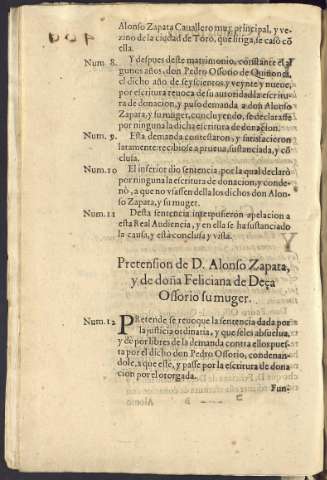 Alonso Zapata Cauallero muy principal, y ve-
zino de la ciudad de Toro, que litiga, se casó cō
ella.
Num. 8. Y despues deste matrimonio, constante el al
gunos años, don Pedro Ossorio de Quiñones,
el dicho año de seyscientos y veynte y nueue,
por escritura reuoca de su autoridad la escritu-
ra de donacion, y puso demanda a don Alonso
Zapata, y su muger, concluyendo, se declarasse
por ninguna la dicha escritura de donacion.
Num. 9. Esta demanda contestaron, y satisfacieron
latamente recibiose a prueua, sustanciada, y cō
clusa.
Num. 10 El inferior dio sentencia, por la qual declarò
por ninguna la escritura de donacion, y conde-
nò, a que no vsassen della los dichos don Alon-
so Zapata, y su muger.
Num. 11 Desta sentencia interpusieron apelacion a
esta Real Audiencia, y en ella se ha sustanciado
la causa, y està conclusa y vista.
Pretension de D. Alonso Zapata,
y de doña Feliciana de Deça
Ossorio su muger.
Num. 12 PRetende se reuoque la sentencia dada por
la justicia ordinaria, y que se les absuelua,
y dè por libres de la demanda contra ellos pues-
ta por el dicho don Pedro Ossorio, condenan-
dole, a que estè, y passe por la escritura de dona
cion por el otorgada.
Fun-